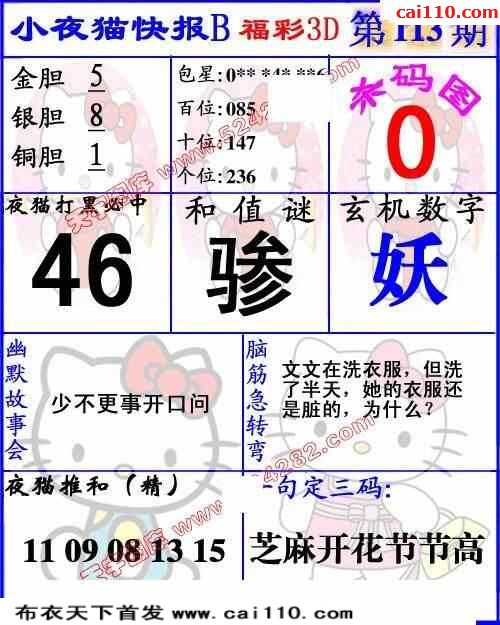 cai110.com
小夜猫快报B 福彩3D 第113期
金胆 5
银胆 8
铜胆 1
包星:0** *4* **6
百位:085
十位:147
个位:236
本码图
0
夜猫打黑必中
46
和值谜
骖
玄机数字
妖
幽默故事会
少不更事开口问
脑筋急转弯
文文在洗衣服，但洗
了半天，她的衣服还
是脏的，为什么？
夜猫推和（精）
11 09 08 13 15
一句定三码:
芝麻开花节节高
天宇图库 www.524282.com
天宇图库 www.524282.com
布衣天下首发 www.cai110.com